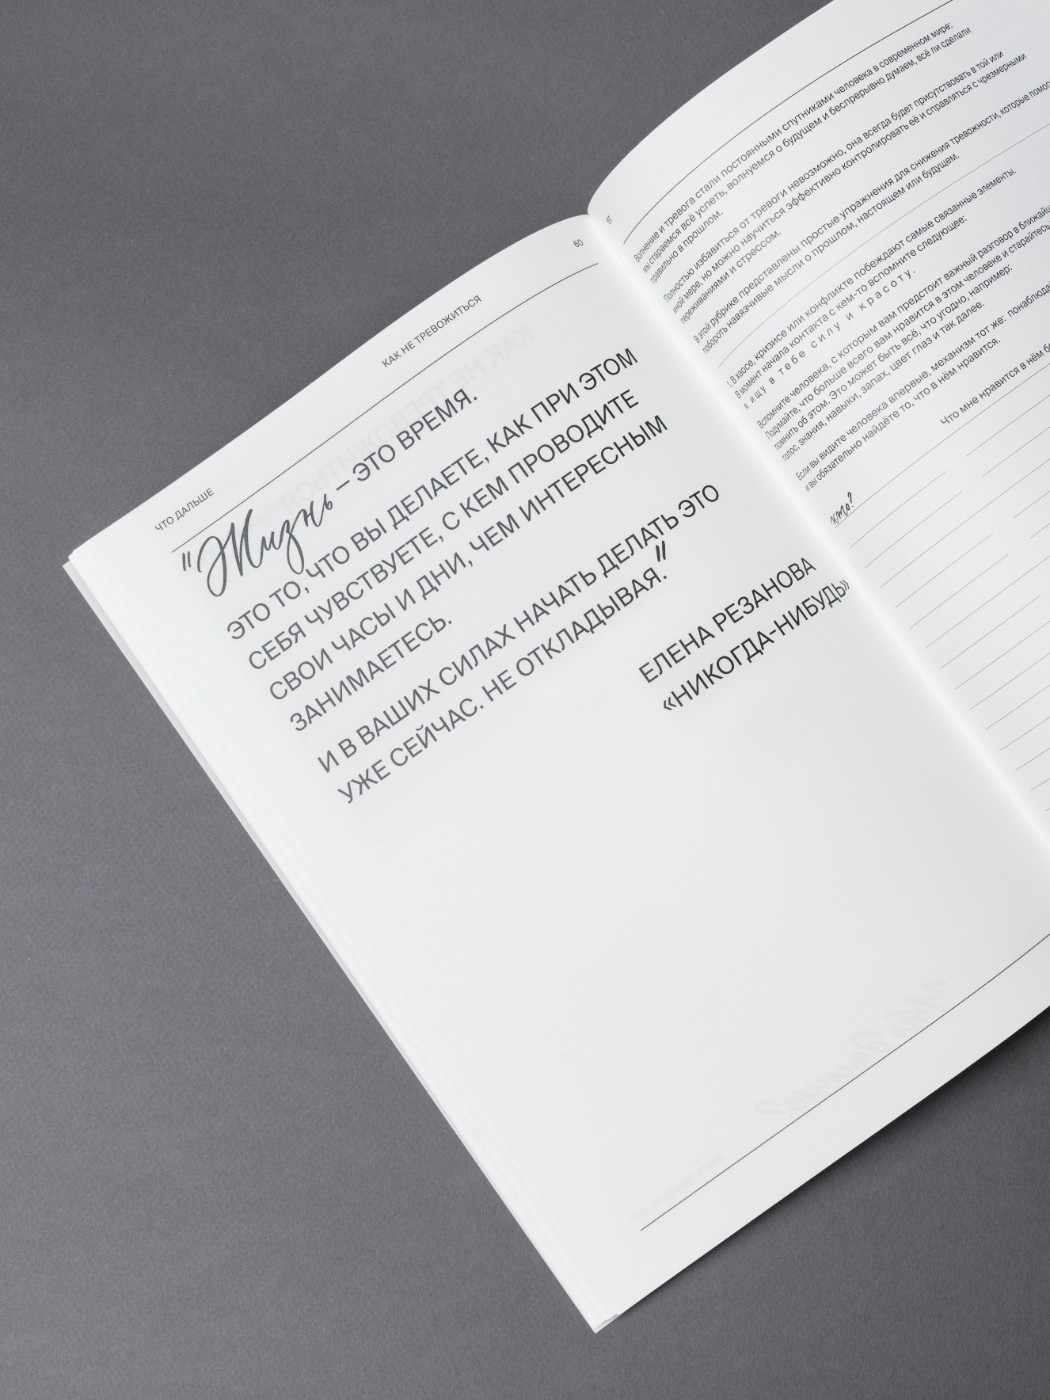 ЧТО ДАЛЬШЕ
КАК НЕ ТРЕВОЖИТЬСЯ
60
"Жизнь – ЭТО ВРЕМЯ.
ЭТО ТО, ЧТО ВЫ ДЕЛАЕТЕ, КАК ПРИ ЭТОМ
СЕБЯ ЧУВСТВУЕТЕ, С КЕМ ПРОВОДИТЕ
СВОИ ЧАСЫ И ДНИ, ЧЕМ ИНТЕРЕСНЫМ
ЗАНИМАЕТЕСЬ.
И В ВАШИХ СИЛАХ НАЧАТЬ ДЕЛАТЬ ЭТО
УЖЕ СЕЙЧАС. НЕ ОТКЛАДЫВАЯ."
ЕЛЕНА РЕЗАНОВА
«НИКОГДА-НИБУДЬ»
61
Волнение и тревога стали постоянными спутниками человека в современном мире:
мы стараемся всё успеть, волнуемся о будущем и беспрерывно думаем, всё ли сделали
правильно в прошлом.
Полностью избавиться от тревоги невозможно, она всегда будет присутствовать в той или
иной мере, но можно научиться эффективно контролировать её и справляться с чрезмерными
переживаниями и стрессом.
В этой рубрике представлены простые упражнения для снижения тревожности, которые
побороть навязчивые мысли о прошлом, настоящем или будущем.
1. В хаосе, кризисе или конфликте побеждают самые связанные элементы.
В момент начала контакта с кем-то вспомните следующее:
я ищу в тебе силу и красоту.
Вспомните человека, с которым вам предстоит важный разговор в
Подумайте, что больше всего вам нравится в этом человеке и старайтесь
помнить об этом. Это может быть всё, что угодно, например:
голос, знания, навыки, запах, цвет глаз и так далее.
Если вы видите человека впервые, механизм тот же:
и вы обязательно найдёте то, что в нём нравится.
Что мне нравится в нём
кто?